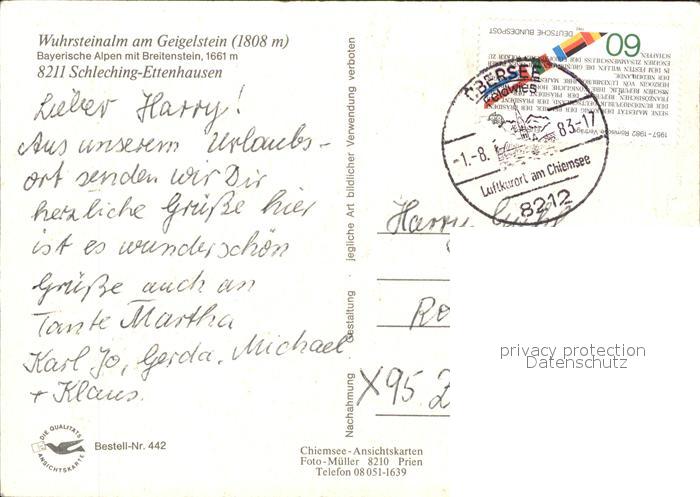 Wuhrsteinalm am Geigelstein (1808 m)
Bayerische Alpen mit Breitenstein, 1661 m
8211 Schleching-Ettenhausen
Lieber Harry!
Aus unserem Urlaubs-
ort senden wir Dir
herzliche Grüße hier
ist es wunderschön
Grüße auch an
Tante Martha
Karl Jo, Gerda, Michael
+ Klaus.
DIE QUALITÄTS
ANSICHTSKARTE
Bestell-Nr. 442
Nachahmung · Gestaltung · jegliche Art bildlicher Verwendung verboten
Chiemsee-Ansichtskarten
Foto-Müller 8210 Prien
Telefon 08051-1639
DEUTSCHE BUNDESPOST
60
1957-1982 Römische Verträge
ÜBERSEE
Feldwies
-1.-8. 83-17
Luftkurort am Chiemsee
8212
Harry
Re
X95
privacy protection
Datenschutz